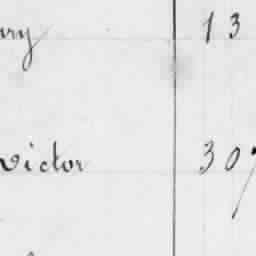 ary 13
victor 307